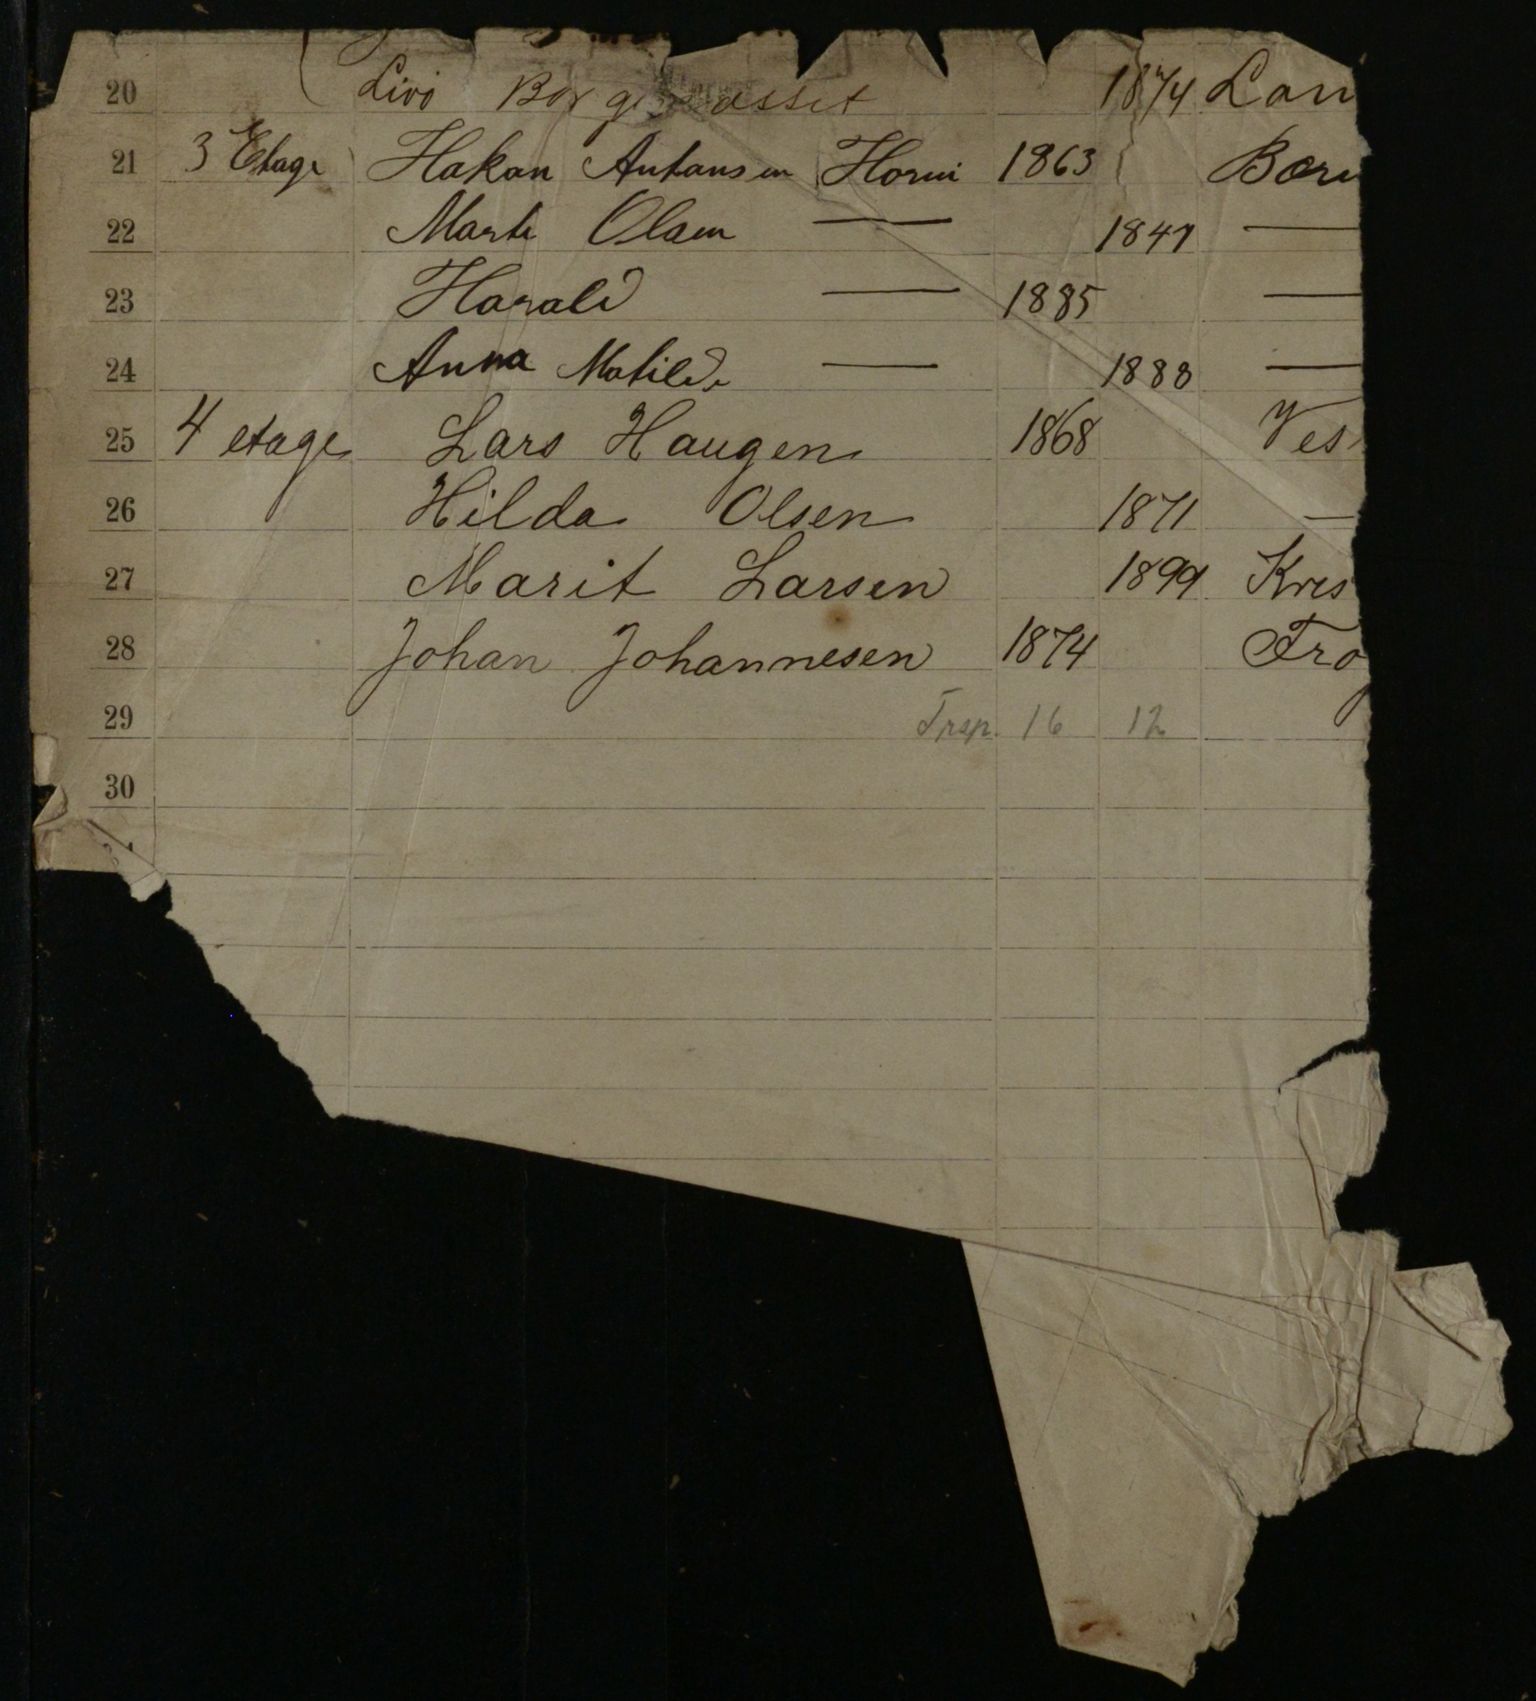 20 Livi 1874 Lan
21 3 Etage Hakan Antansen Horni 1863 Bær
22 Marte Olsen — 1847 —
23 Harald — 1885 —
24 Anna Matilde — 1888 —
25 4 etage Lars Haugen 1868 Ves
26 Hilda Olsen 1871 —
27 Marit Larsen 1899 Kris
28 Johan Johannesen 1874 Fro
29 Trsp. 16 12
30